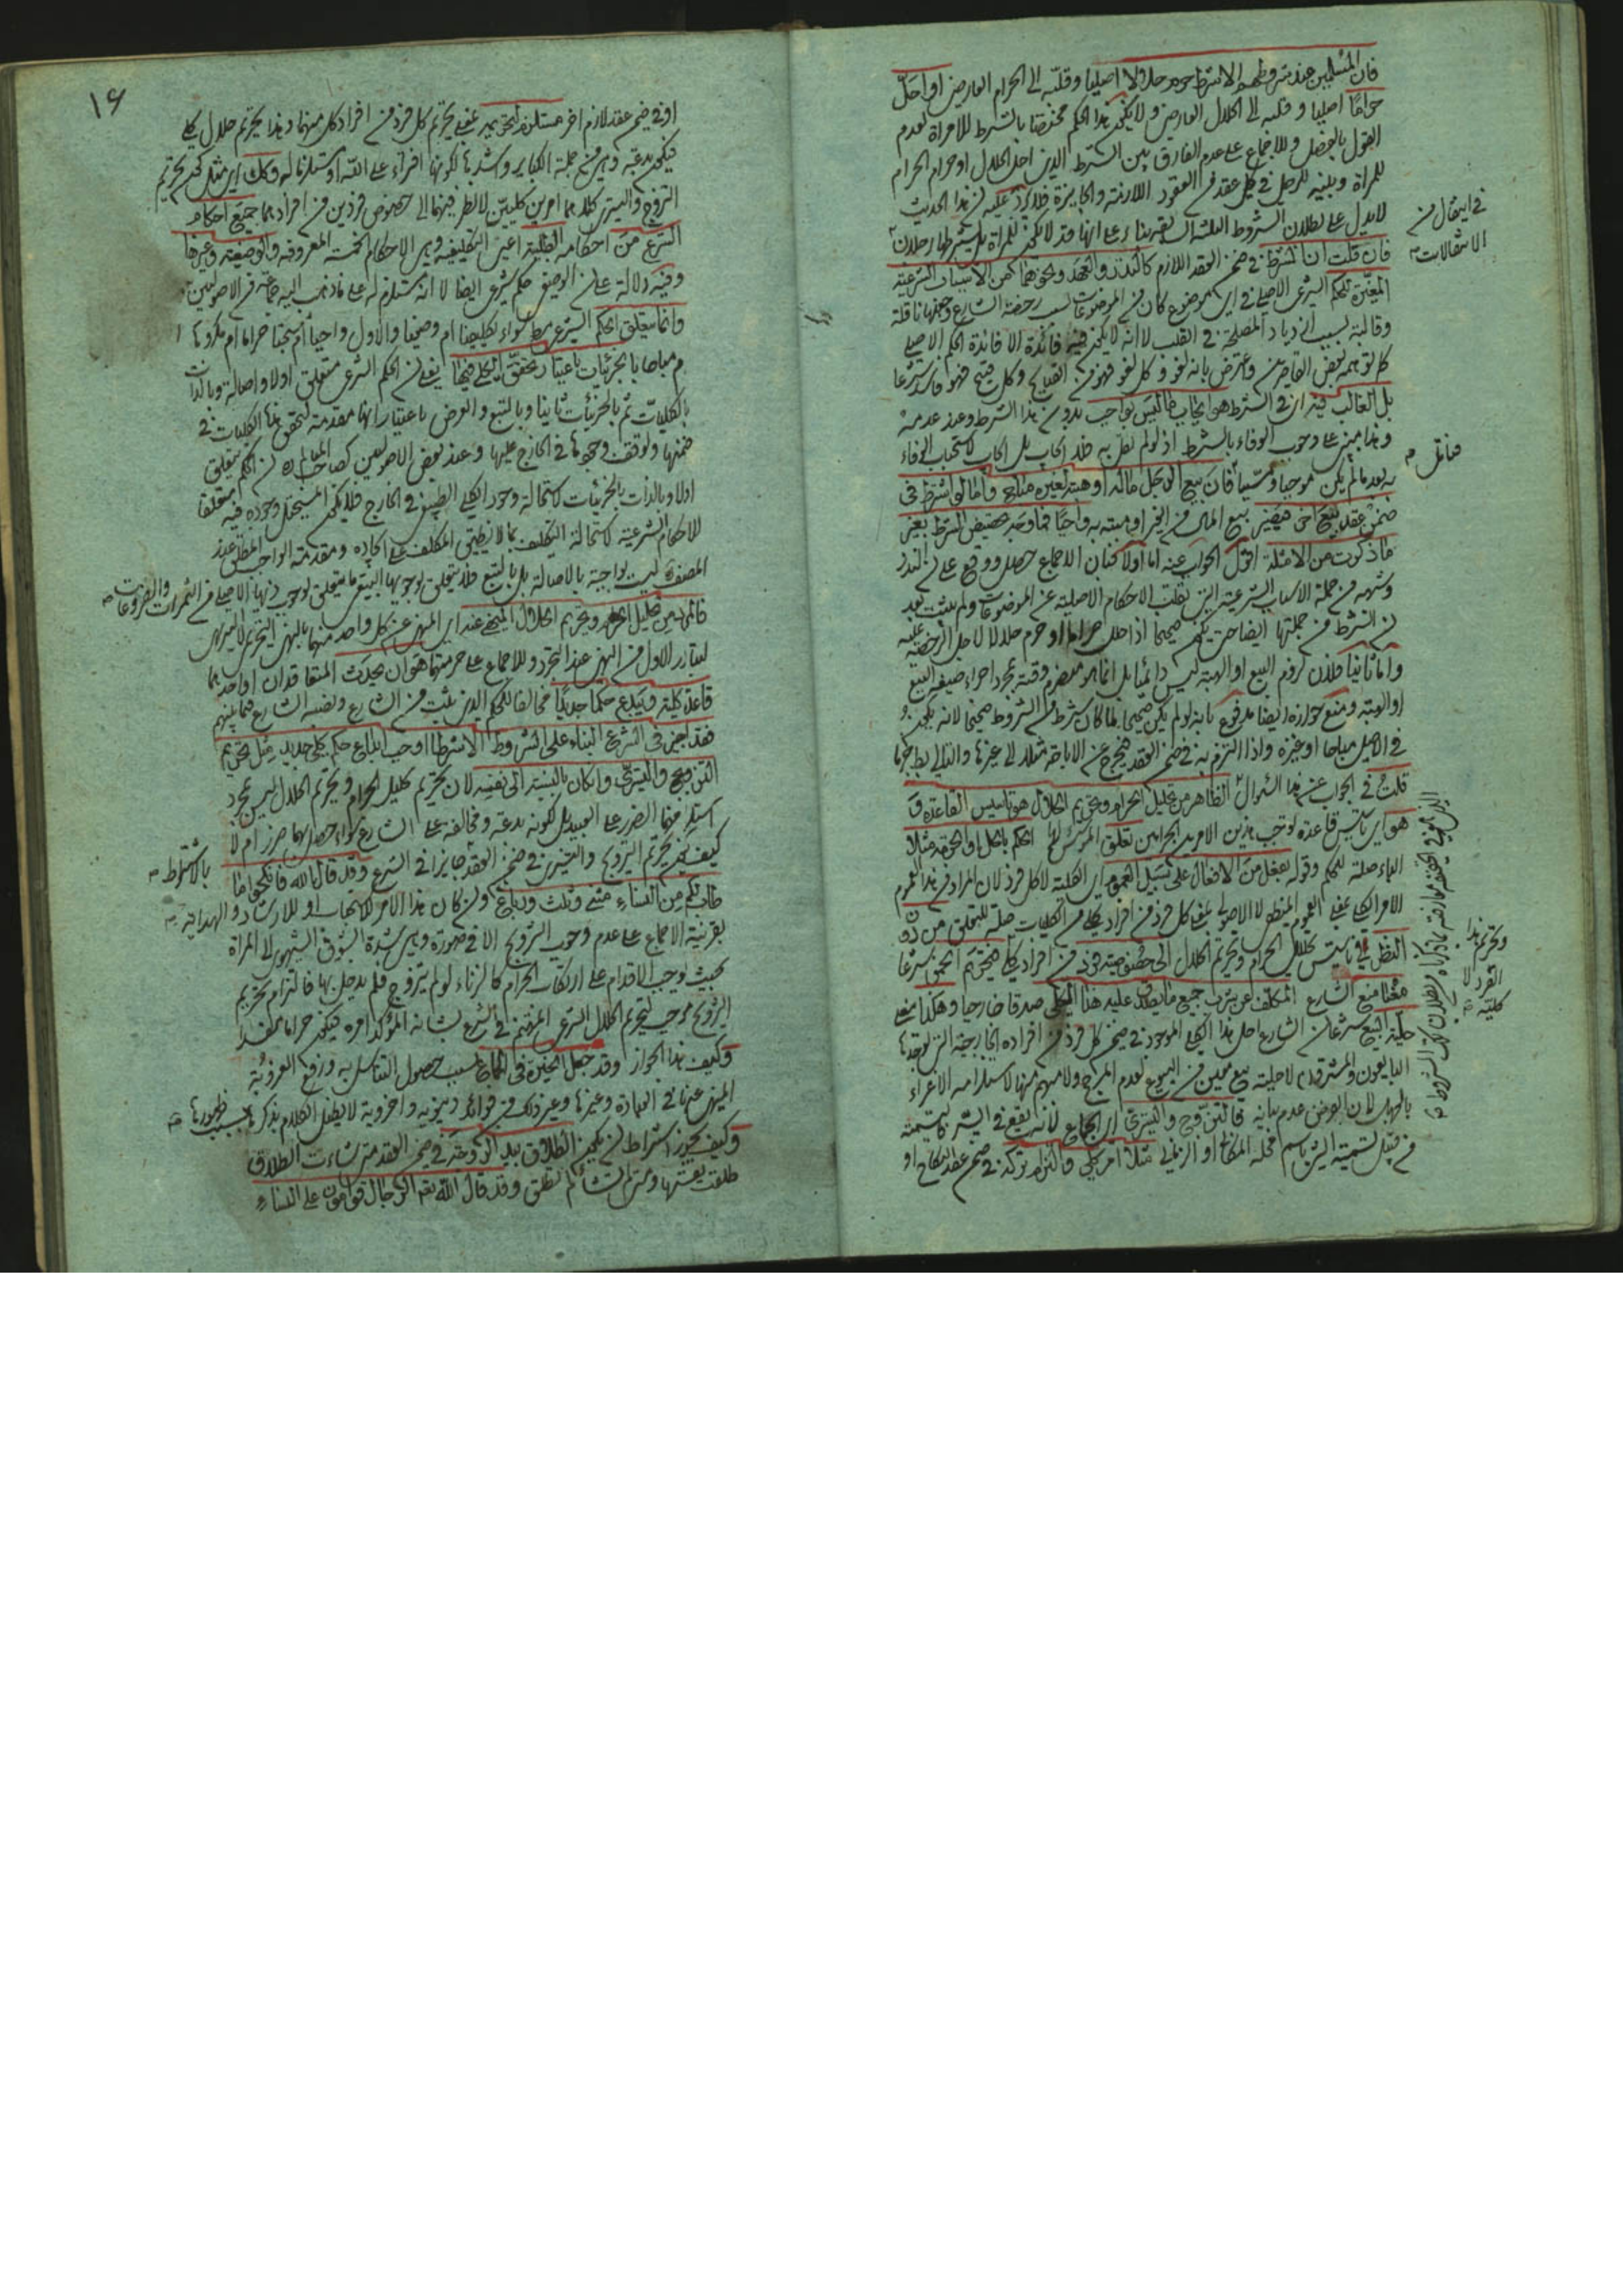 فان المسلمين عند شروطهم الا شرطا حرم حلالا اصليا وقلبه الى الحرام العارضي او احل
حراما اصليا وقلبه الى الحلال العارضي ولا يكون هذا الحكم مختصا بالشرط للامراة لعدم
القول بالفصل وللاجماع على عدم الفارق بين الشرط الذي احل الحلال او حرام الحرام
للمراة وبينه للرجل في كل عقد من العقود اللازمة والجايزة فلا يرد عليه ان هذا الحديث
لا يدل على بطلان الشروط الثلثة السابقة بناء على انها قد لا يكون للمراة بل يشترطها رجلان
فان قلت ان الشرط في ضمن العقد اللازم كالنذر والعهد ونحوهما من الاسباب الشرعية
المغيرة للحكم الشرعي الاصلي في اي موضوع كان من الموضوعات رخصة الشارع وجعلها ناقلة
وقالبة بسبب ازدياد المصلحة في القلب لا انه لا يكون فيه فائدة الا فائدة الحكم الاصلي
كما توهمه بعض القاصرين واعترض بانه لغو وكل لغو فهو من القبايح وكل قبيح فهو فاسد شرعا
بل الغالب فيه اي في الشرط هو ايجاب ما ليس بواجب بدون هذا الشرط وعند عدمه
وهذا مبني على وجوب الوفاء بالشرط اذ لو لم نقل به فلا ايجاب بل ايجاب لاستحباب الوفاء
به بعد ما لم يكن موجبا وسببا فان بيع الرجل ماله او هبته لغيره مباح واما لو اشترط في
ضمن عقد بيع اخر فيصير بيع المال من الغير او هبته به واجبا فما وجه تخصيص الشرط بغير
ما ذكرت من الامثلة اقول الجواب عنه اما اولا فبان الاجماع حصل ووقع على ان النذر
وشبهه من جملة الاسباب الشرعية التي تقلب الاحكام الاصلية عن الموضوعات ولم يثبت بعد
ان الشرط من جملتها ايضا حتى يكون صحيحا اذا احل حراما او حرم حلالا لاجل الرخصة عليه
واما ثانيا فلان لزوم البيع او الهبة ليس دائميا بل انما هو منصرم وقته بمجرد اجراء صيغة البيع
او الهبة ومنع جوازه ايضا مدفوع بانه لو لم يكن صحيحا لما كان شرط من الشروط صحيحا لانه يكون
في الاصل مباحا او غيره واذا التزم به في ضمن العقد فيخرج عن الاباحة مثلا الى غيرها والتالي باطل جزما
قلت في الجواب عن هذا السؤال الظاهر من تحليل الحرام وتحريم الحلال هو تاسيس القاعدة و
هو اي تاسيس قاعدة توجب هذين الامرين الحرامين تعلق الحكم بالحل او الحرمة مثلا
الباء صلة للحكم وقوله بفعل من الافعال على سبيل العموم اي الكلية لا كل فرد لان المراد من هذا العموم
الامر الكلي يعني العموم المنطقي لا الاصولي بمعنى كل فرد من افراد كلي من الكليات صلة للتعلق من دون
النظر في تاسيس تحليل الحرام وتحريم الحلال الى خصوصية فرد من افراد كلي فتحريم الخمر شرعا
معناه منع الشارع المكلف عن شرب جميع ما يصدق عليه هذا الكلي صدقا خارجيا وهكذا معنى
حلية البيع شرعا ان الشارع احل هذا الكلي الموجود في ضمن كل فرد من افراده الخارجية التي توجدها
البايعون والمشترون لا حلية بيع معين من البيوع لعدم المرجح ولا مبهم منها لاستلزامه الاغراء
بالجهل لان الغرض عدم بيانه فالتزوج والتسري اي الجماع لانه يقع في السر كتسمية
من قبيل تسمية الشيء باسم محله المكاني او الزماني مثلا امر كلي فالتزام تركه في ضمن عقد النكاح او
في ايقال من
الانتقالات
فتامل
وتحريم هذا
الفرد لا
كليته
١٤
او في ضمن عقد لازم اخر مستلزم لتحريمه يعني تحريم كل فرد من افراد كل منهما وهذا تحريم حلال كلي
فيكون بدعة وهي من جملة الكباير واشدها لكونها افتراء على الله او مستلزما له وكذلك اي مثل كون تحريم
التزوج والتسري كلاهما امرين كليين لا نظر فيهما الى خصوص فردين من افرادهما جميع احكام
الشرع من احكامه الطلبية اعني التكليفية وهي الاحكام الخمسة المعروفة والوضعية وغيرها
وفيه دلالة على ان الوضعي حكم شرعي ايضا لا انه مستلزم له على ما ذهب اليه جماعة من الاصوليين
وانما يتعلق الحكم الشرعي سواء تكليفيا ام وضعيا والاول واجبا ام مستحبا حراما ام مكروها
ام مباحا بالجزئيات باعتبار تحقق الكلي فيها يعني ان الحكم الشرعي متعلق اولا واصالة وبالذات
بالكليات ثم بالجزئيات ثانيا وبالتبع والعرض باعتبار انها مقدمة لتحقق هذه الكليات في
ضمنها وتوقف وجودها في الخارج عليها وعند بعض الاصوليين كصاحب المعالم ره ان الحكم يتعلق
اولا وبالذات بالجزئيات لاستحالة وجود الكلي الطبيعي في الخارج فلا يكون المستحيل وجوده فيه متعلقا
للاحكام الشرعية لاستحالة التكليف بما لا يطيق المكلف على ايجاده ومقدمة الواجب المطلق عند
المصنف ليست بواجبة بالاصالة بل بالتبع فلا يتعلق بوجوبها التبعي ما يتعلق بوجوب ذيها الاصلي من الثمرات والفروعات
فالمراد من تحليل الحرام وتحريم الحلال المنهي عنه اي المنهي عن كل واحد منهما بالنهي التحريمي لا التنزيهي
لتبادر الاول من النهي عند التجرد وللاجماع على حرمتهما هو ان يحدث المتعاقدان او احدهما
قاعدة كلية ويبدع حكما جديدا مخالفا للحكم الذي ثبت من الشارع ونصبه الشارع فيما بينهم
فقد اجيز في الشرع البناء على الشروط الا شرطا اوجب ابداع حكم كلي جديد مثل تحريم
التزوج والتسري وان كان بالنسبة الى نفسه لان تحريم تحليل الحرام وتحريم الحلال ليس بمجرد
استلزامهما الضرر على العبيد بل لكونه بدعة ومخالفة على الشارع سواء حصل بهما ضرر ام لا
كيف يكون تحريم التزويج والتسري في ضمن العقد جايزا في الشرع وقد قال الله فانكحوا ما
بالاشتراط
طاب لكم من النساء مثنى وثلث ورباع وان كان هذا الامر للاستحباب او للارشاد والهداية
بقرينة الاجماع على عدم وجوب التزويج الا في صورة وهي شدة الشوق الشهوي الى المراة
بحيث يوجب الاقدام على ارتكاب الحرام كالزناء لو لم يتزوج فلم يدخل بها فالتزام تحريم
التزويج موجب لتحريم الحلال الشرعي المرغب في الشرع لشانه المؤكد امره فيكون حراما مفسدا
وكيف هذا الجواز وقد جعل الخيرة في الجماع بسبب حصول التناسل به ورفع العزوبة
المنهي عنها في العبادة وغيرها وغير ذلك من فوائد دنيوية واخروية لا يطيل الكلام بذكرها بسبب ظهورها
وكيف يجوز اشتراط ان يكون الطلاق بيد الزوجة في ضمن العقد متى شاءت الطلاق
طلقت بنفسها ومتى لم تشا لم تطلق وقد قال الله تعه الرجال قوامون على النساء